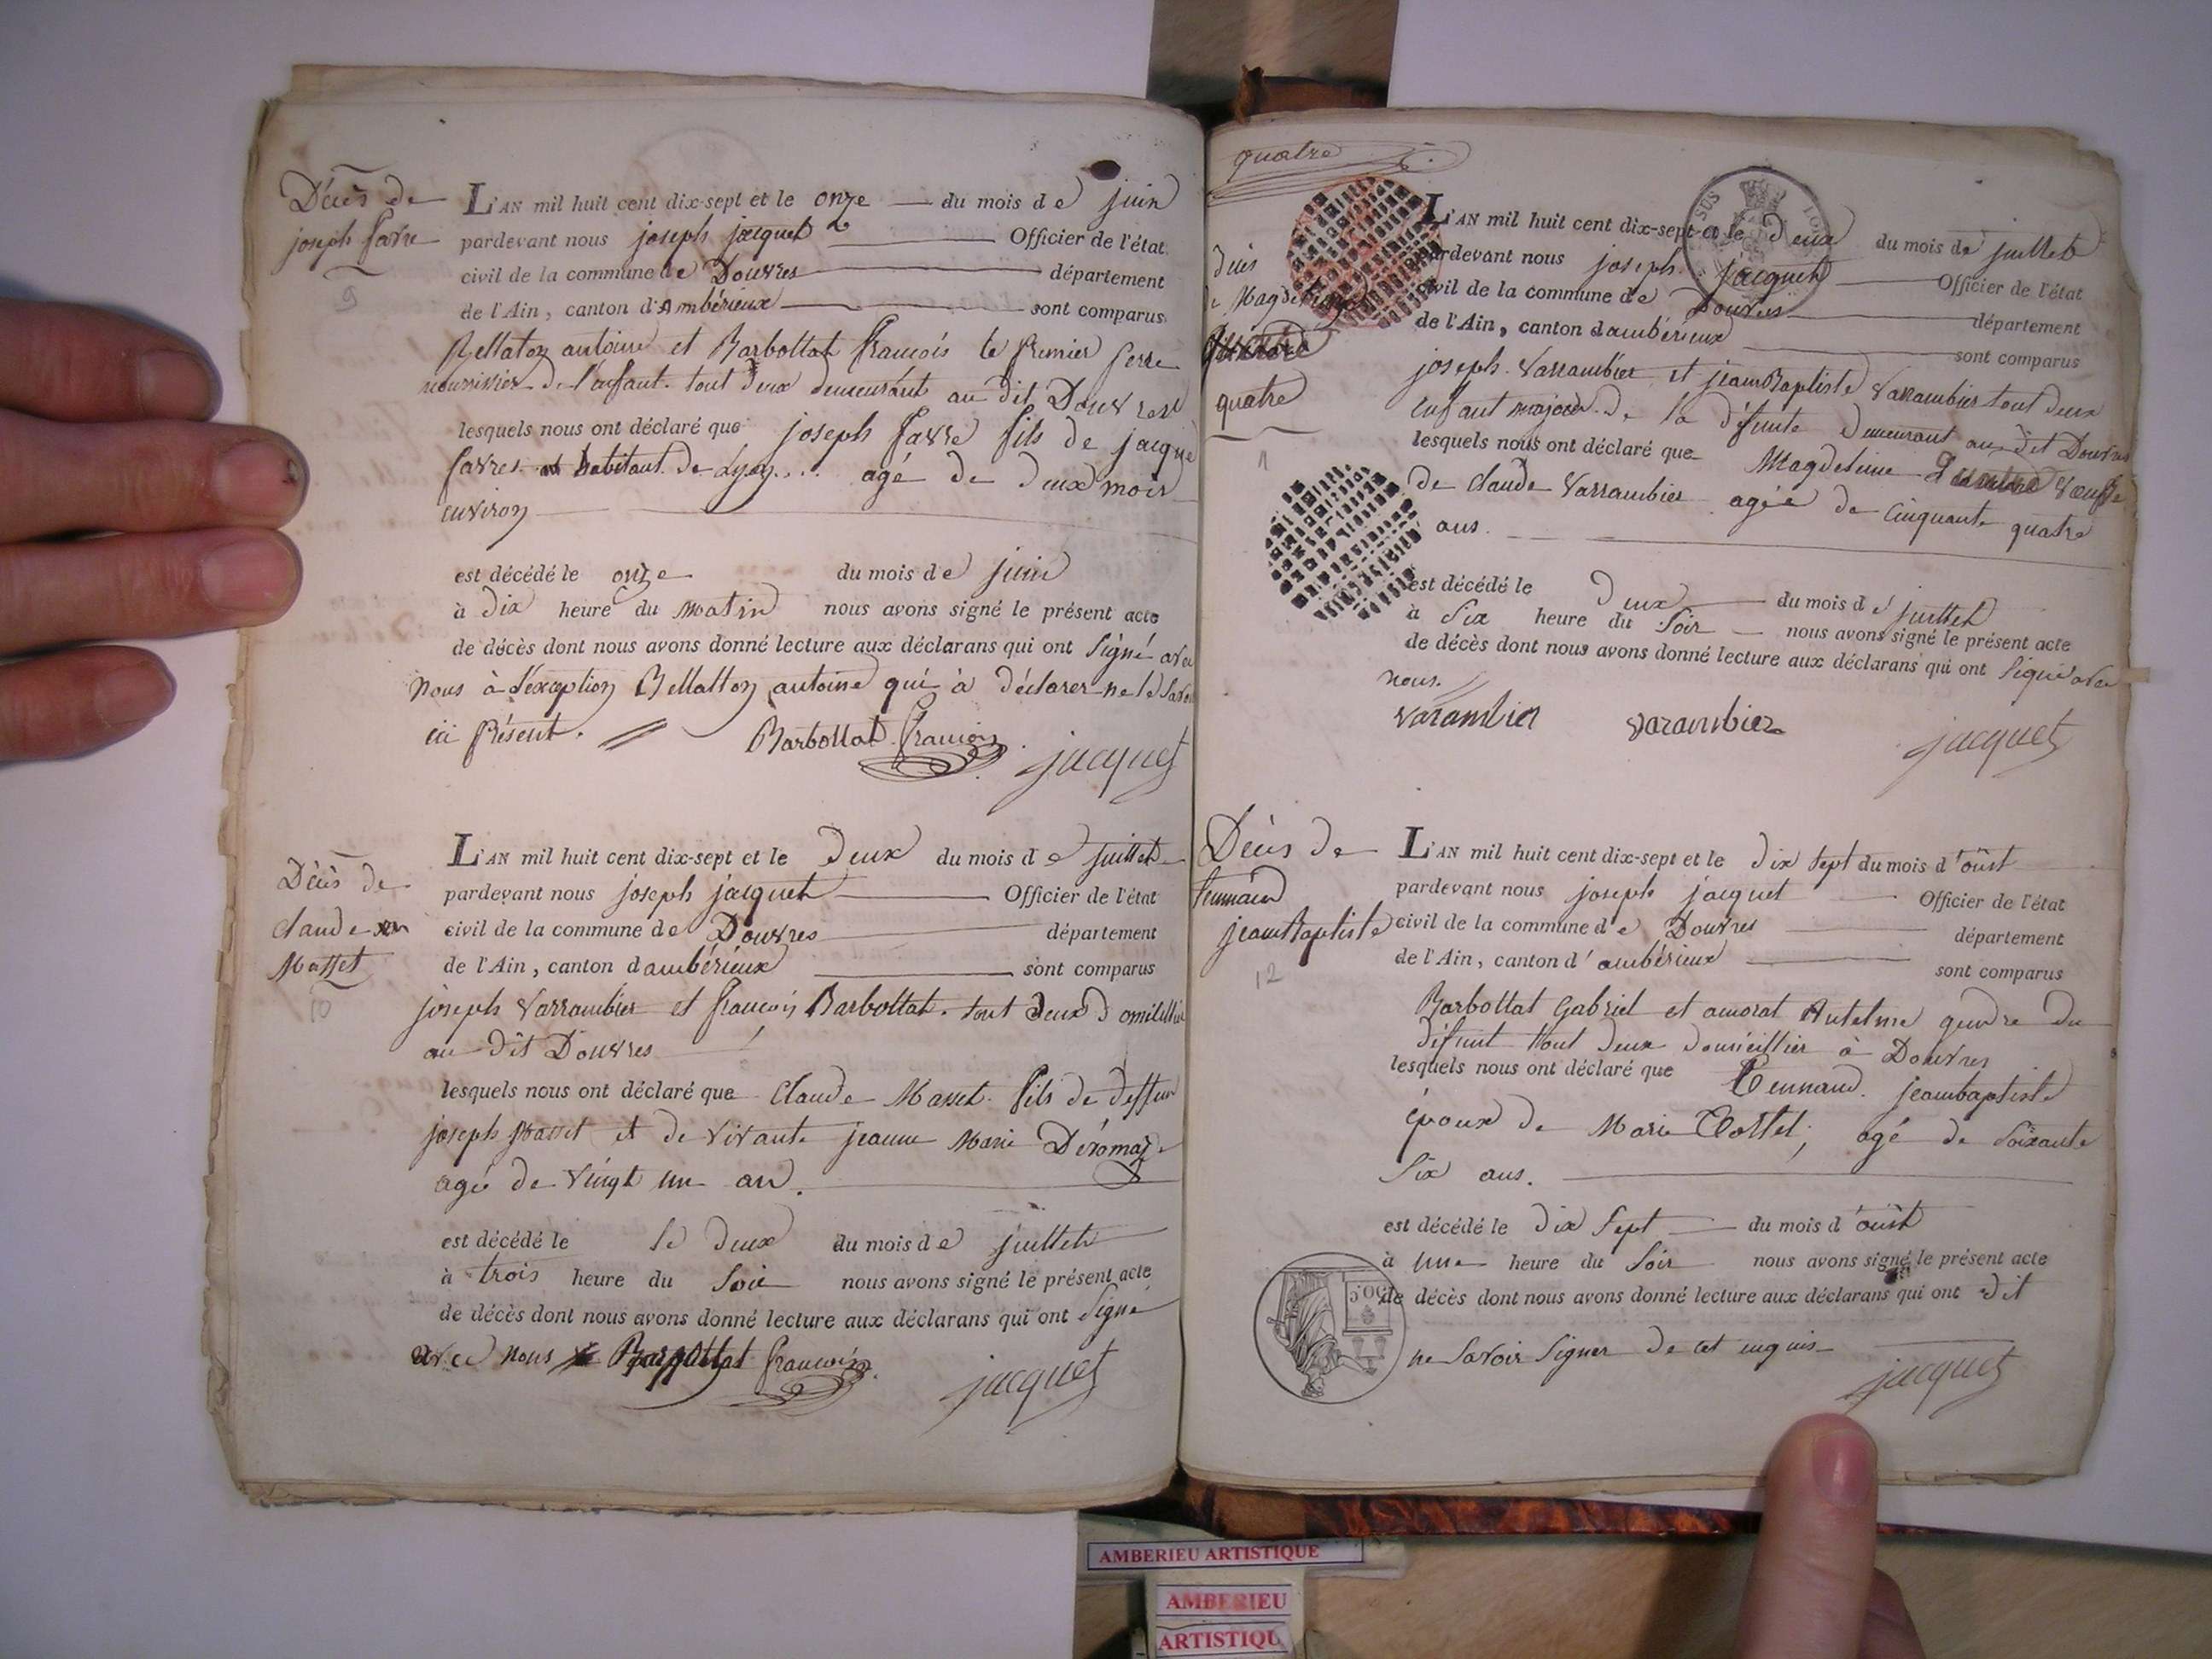 Décès de
joseph favre
9
L'AN mil huit cent dix-sept et le onze du mois de juin
pardevant nous joseph jacquet Officier de l'état
civil de la commune de Douvres département
de l'Ain, canton d'Ambérieux sont comparus
Bellaton antoine et Barbollat francois le premier perre
nourissier de l'enfant tout deux demeurant au dit Douvres
lesquels nous ont déclaré que joseph favre fils de jacque
favres habitant de Lyon... agé de deux mois
environ
est décédé le onze du mois de juin
à dix heure du matin nous avons signé le présent acte
de décès dont nous avons donné lecture aux déclarans qui ont signé avec
nous à l'éxception Bellatton antoine qui à déclarer ne le savoir
ici présent.
Barbollat francois jacquet
Décès de
claude
Masset
10
L'AN mil huit cent dix-sept et le deux du mois de juillet
pardevant nous joseph jacquet Officier de l'état
civil de la commune de Douvres département
de l'Ain, canton d'ambérieux sont comparus
joseph Varrambier et francois Barbollat tout deux domicillié
au dit Douvres
lesquels nous ont déclaré que Claude Masset fils de deffun
joseph Masset et de vivante jeanne Marie Déromaz
agé de vingt un an.
est décédé le le deux du mois de juillet
à trois heure du soir nous avons signé le présent acte
de décès dont nous avons donné lecture aux déclarans qui ont signé
avec nous Barbollat francois jacquet
quatre
décès
de Magdeleine
quatre
L'AN mil huit cent dix-sept et le deux du mois de juillet
pardevant nous joseph jacquet Officier de l'état
civil de la commune de Douvres département
de l'Ain, canton d'ambérieux sont comparus
joseph Varrambier et jean Baptiste Varrambier tout deux
enfant majeur de la défunte demeurant au dit Douvres
lesquels nous ont déclaré que Magdeleine veuffe
de claude Varrambier agée de cinquante quatre
ans.
est décédé le deux du mois de juillet
à six heure du soir nous avons signé le présent acte
de décès dont nous avons donné lecture aux déclarans qui ont signé avec
nous.
varambier varambier jacquet
Décès de
tennand
jean Baptiste
12
L'AN mil huit cent dix-sept et le dix sept du mois d'oûst
pardevant nous joseph jacquet Officier de l'état
civil de la commune de Douvres département
de l'Ain, canton d'ambérieux sont comparus
Barbollat Gabriel et amorat Antelme gendre du
défunt tout deux domicillier à Douvres
lesquels nous ont déclaré que Tennand jeanbaptiste
époux de Marie Tostel; agé de soixante
six ans.
est décédé le dix sept du mois d'oûst
à une heure du soir nous avons signé le présent acte
de décès dont nous avons donné lecture aux déclarans qui ont dit
ne savoir signer de cet enquis
jacquet
AMBERIEU ARTISTIQUE
AMBERIEU
ARTISTIQU